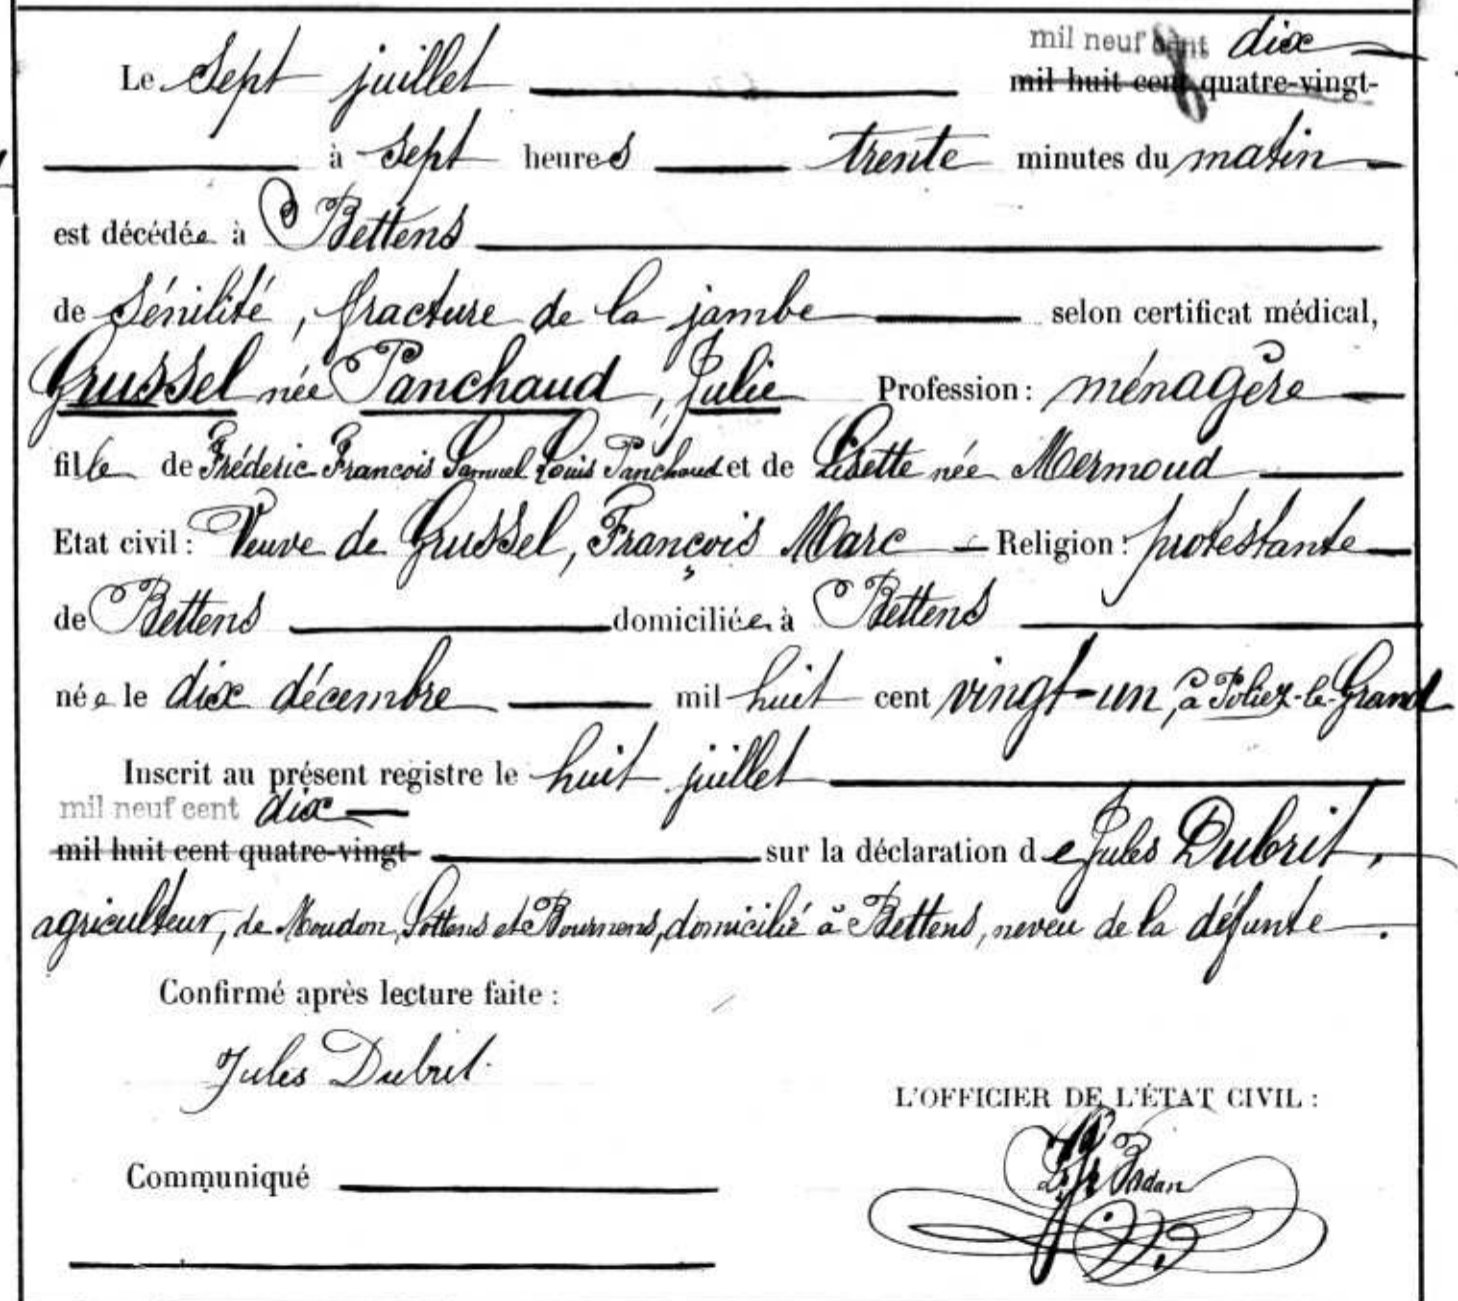 mil neuf cent dix
Le sept juillet mil huit cent quatre-vingt-
à sept heures trente minutes du matin
est décédée à Bettens
de Sénilité, fracture de la jambe selon certificat médical,
Grussel née Panchaud, Julie Profession : ménagère
fille de Fréderic François Samuel Louis Panchaud et de Lisette née Mermoud
Etat civil : Veuve de Grussel, François Marc Religion : protestante
de Bettens domiciliée à Bettens
née le dix décembre mil huit cent vingt-un, à Poliez-le-Grand
Inscrit au présent registre le huit juillet
mil neuf cent dix
mil huit cent quatre-vingt- sur la déclaration de Jules Dubrit,
agriculteur, de Moudon, Sottens et Bournens, domicilié à Bettens, neveu de la défunte.
Confirmé après lecture faite :
Jules Dubrit.
L'OFFICIER DE L'ÉTAT CIVIL :
Communiqué